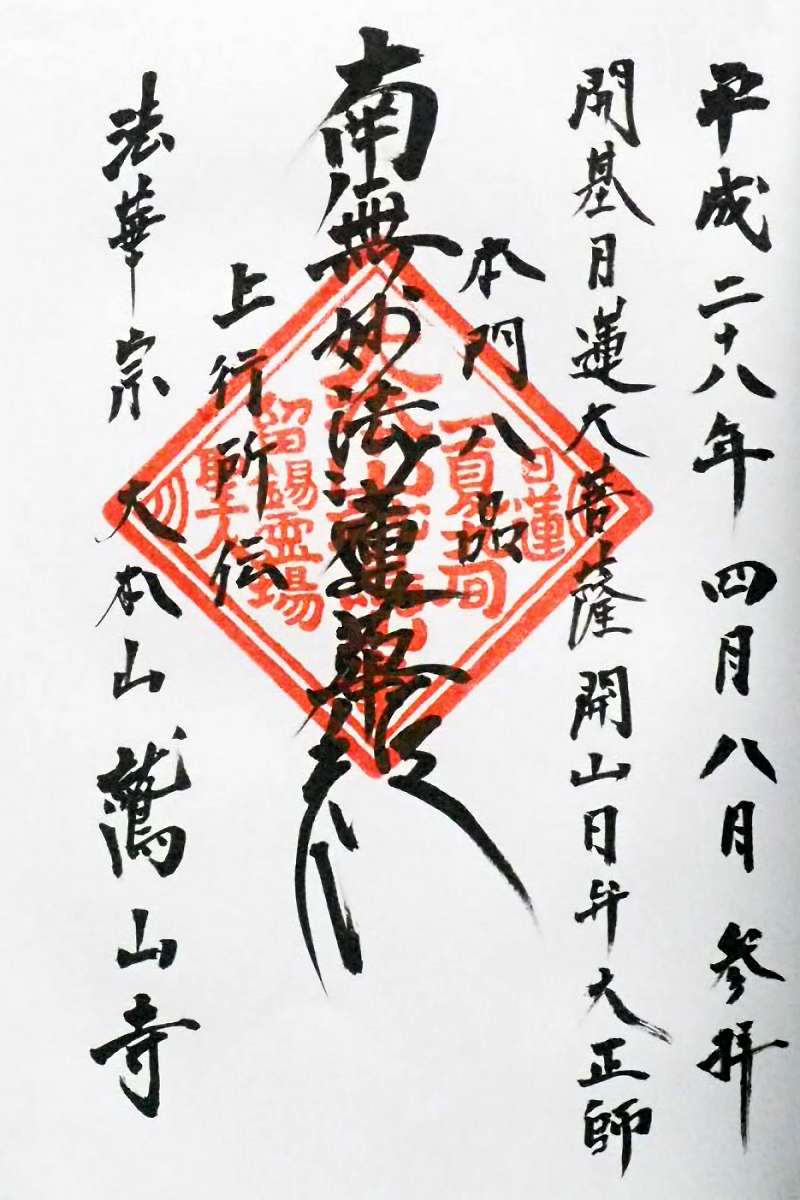 平成二十八年 四月八日 参拝
開基日蓮大菩薩 開山日弁大正師
本門八品
南無妙法蓮華経
上行所伝
法華宗 大本山 鷲山寺
日蓮
留錫霊場
聖人